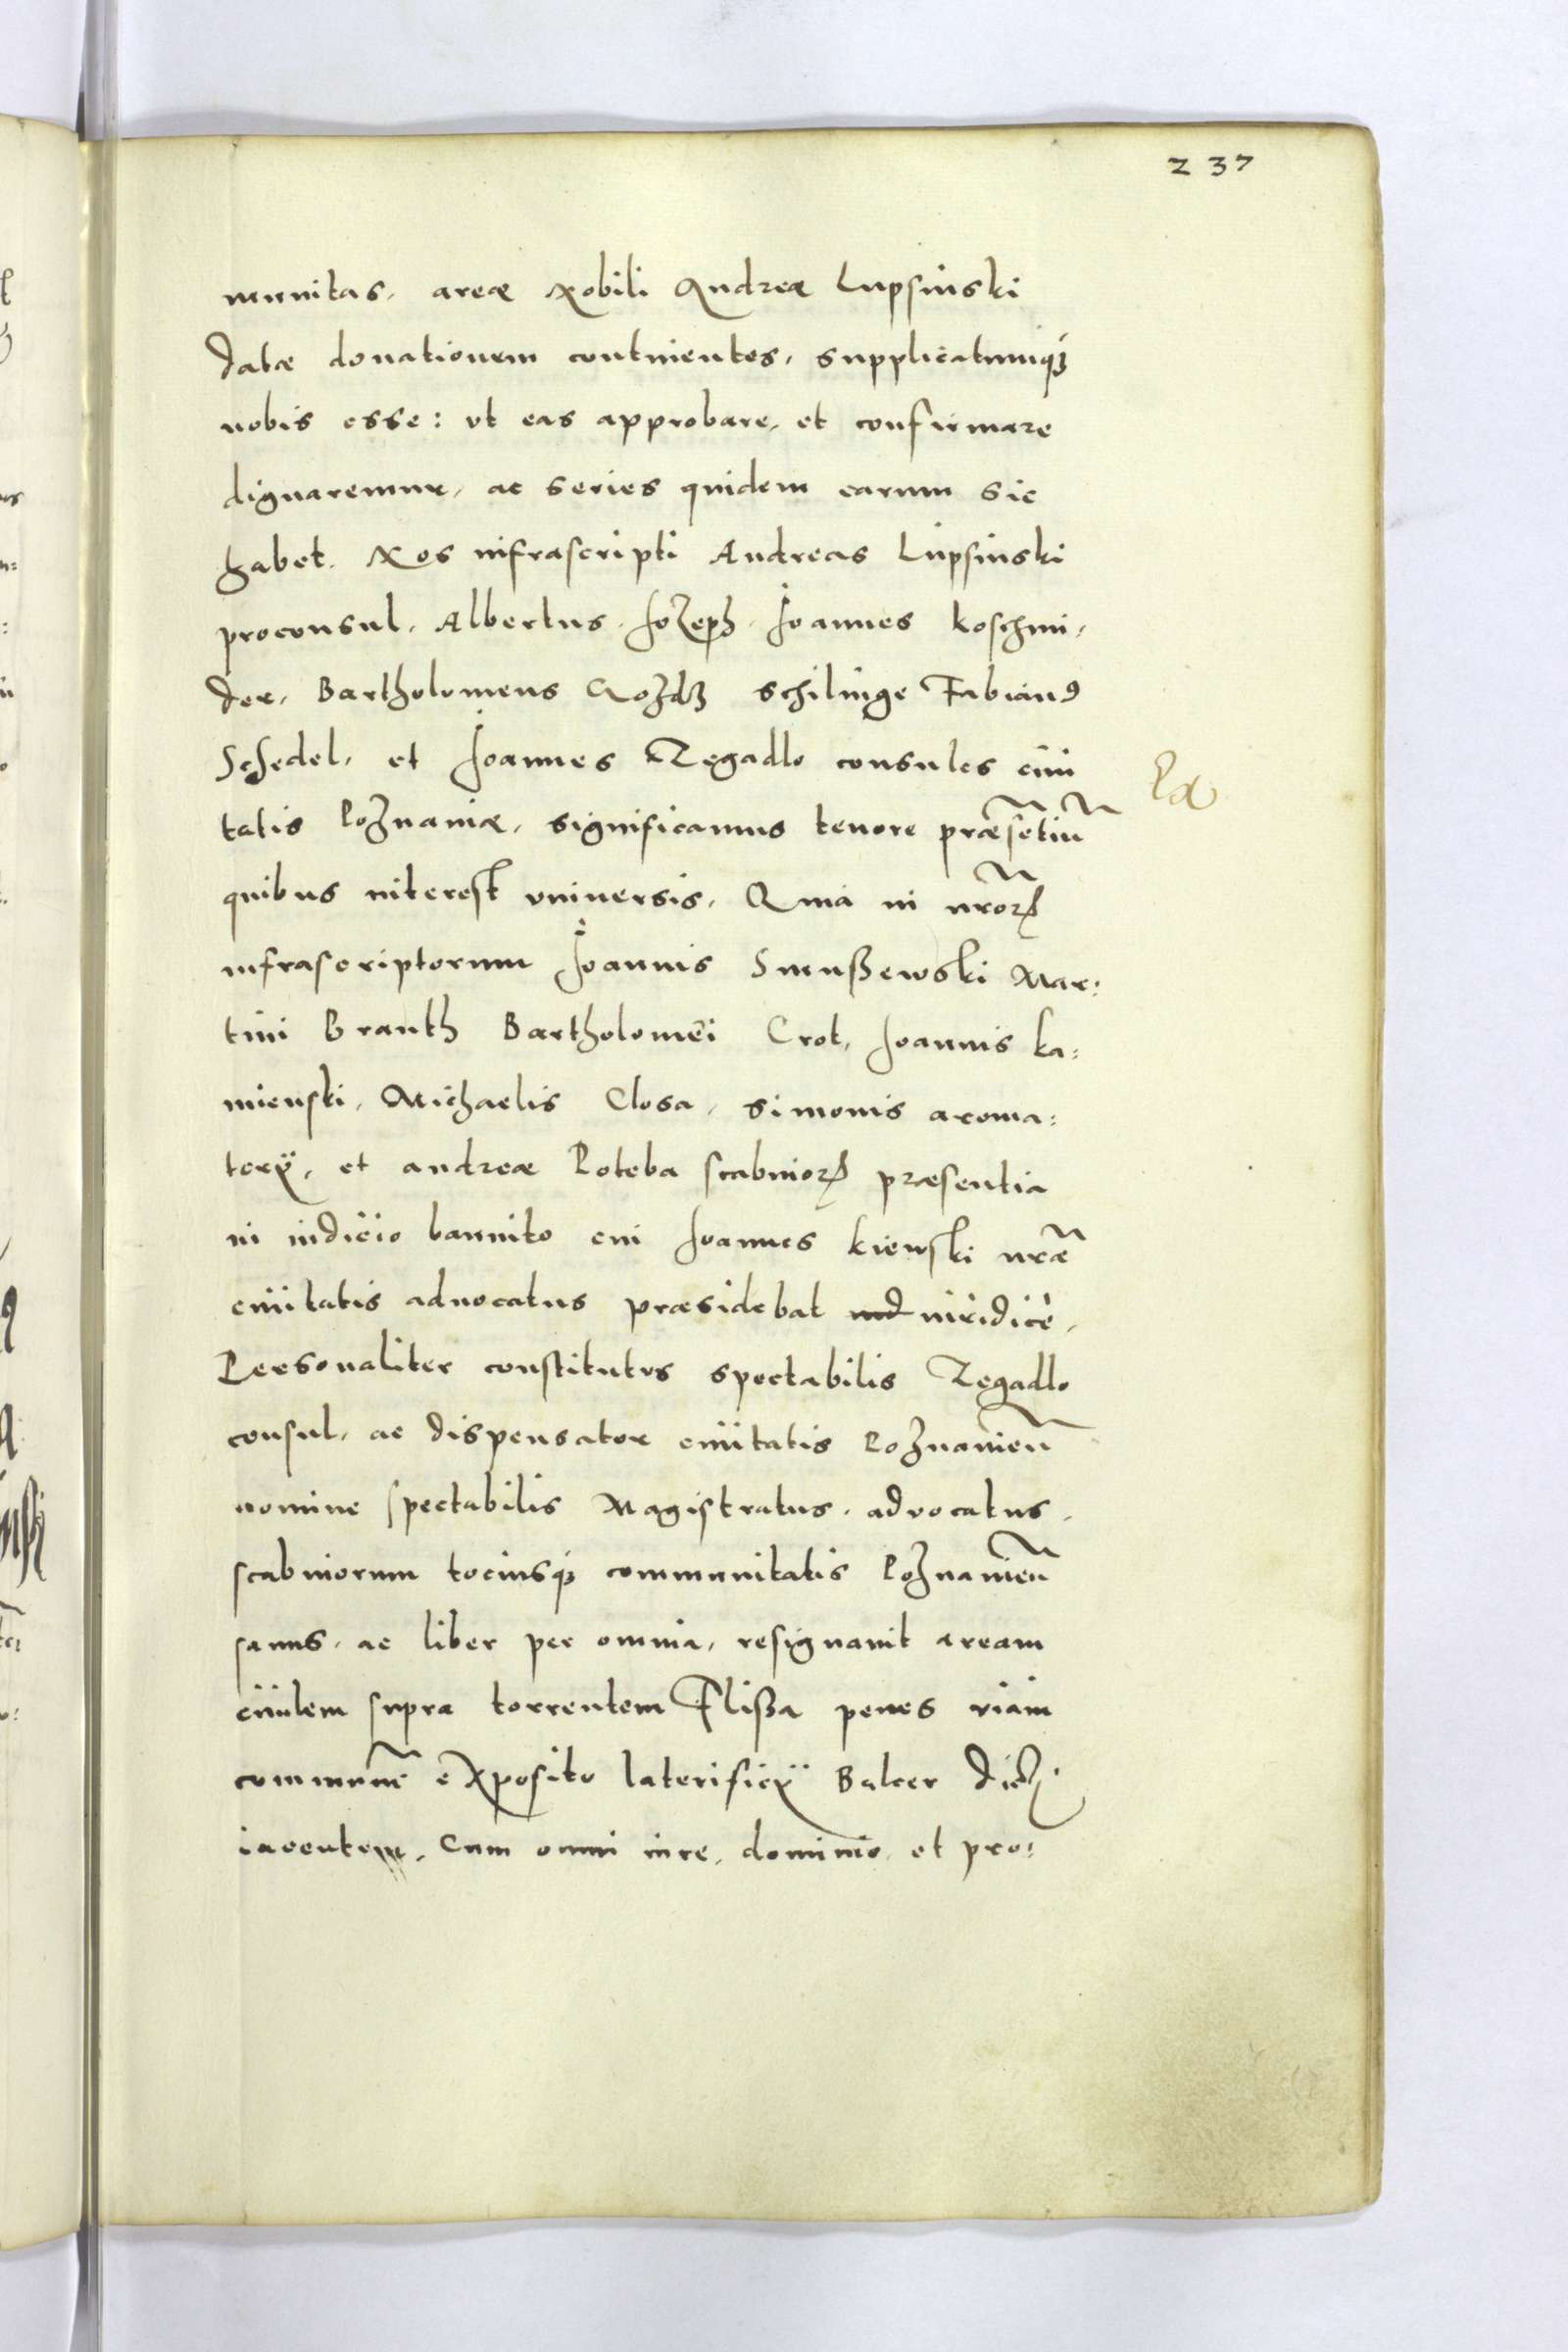 237
munitas, areæ Nobili Andreæ Lupsinski
datæ donationem continentes, supplicatumq3
nobis esse: vt eas approbare, et confirmare
dignaremur, ac series quidem earum sic
habet. Nos infrascripti Andreas Lupsinski
proconsul, Albertus Jozeph, Joannes koschmi,
der, Bartholomeus Gozdz schilinge Fabian9
Schedel, et Joannes Zegadlo consules ciui
tatis Poznaniæ, significamus tenore præsētiū
quibus interest vniuersis, Quia in nr̄orꝝ
infrascriptorum Joannis Smußewski Mar:
tini Branth Bartholomei Crot, Joannis ka:
mienski, Michaelis Closa, simonis aroma:
tarÿ, et andreæ Poteba scabinorꝝ præsentia
in iudicio bannito cui Joannes kienski nr̄æ
ciuitatis aduocatus præsidebat iuridicè,
Personaliter constitutus spectabilis Zegadlo
consul, ac dispensator ciuitatis Poznanien̄
nomine spectabilis Magistratus, advocatus,
scabinorum tociusq3 communitatis Poznanien̄
sanus, ac liber per omnia, resignauit aream
ciuilem supra torrentem Flißa penes viam
communē exposito laterificÿ Balcer dicti
iacentem, Cum omni iure, dominio, et pro: